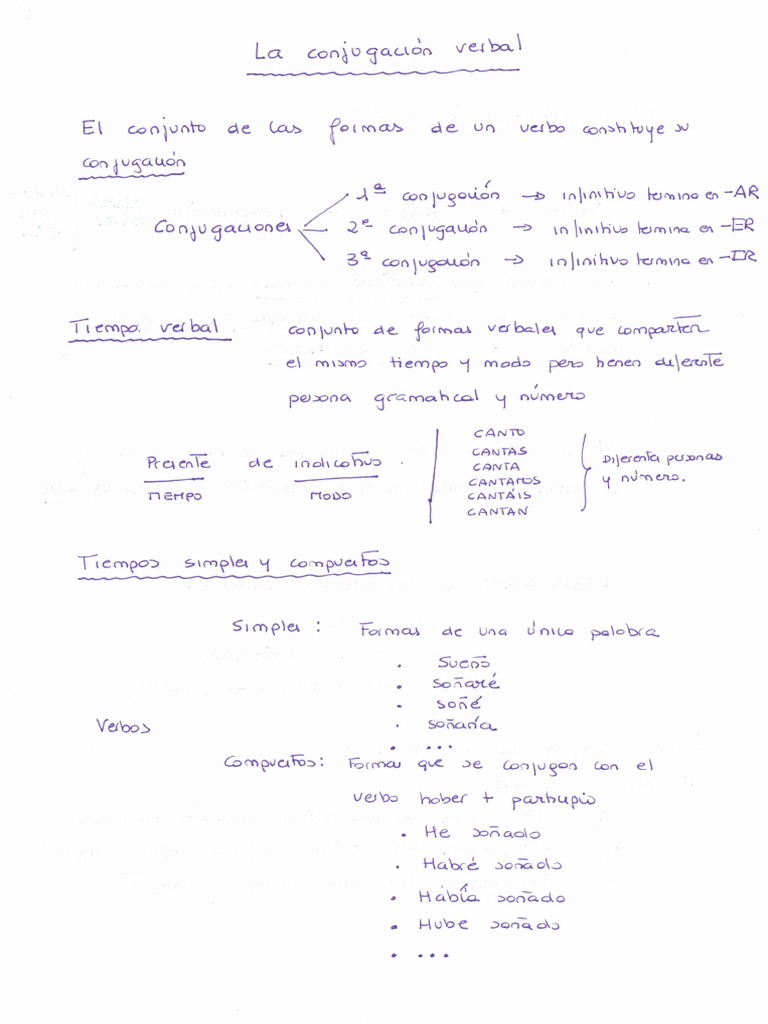 La conjugación verbal
El conjunto de las formas de un verbo constituye su
conjugación
1ª conjugación → infinitivo termina en -AR
Conjugaciones 2ª conjugación → infinitivo termina en -ER
3ª conjugación → infinitivo termina en -IR
Tiempo verbal conjunto de formas verbales que comparten
el mismo tiempo y modo pero tienen diferente
persona gramatical y número
CANTO
CANTAS
Presente de indicativo CANTA Diferenta personas
TIEMPO MODO CANTAMOS y número.
CANTÁIS
CANTAN
Tiempos simples y compuestos
Simples: Formas de una única palabra
• Sueño
• soñaré
• soñé
Verbos • soñaría
• ...
Compuestos: Formas que se conjugan con el
verbo haber + participio
• He soñado
• Habré soñado
• Había soñado
• Hube soñado
• ...